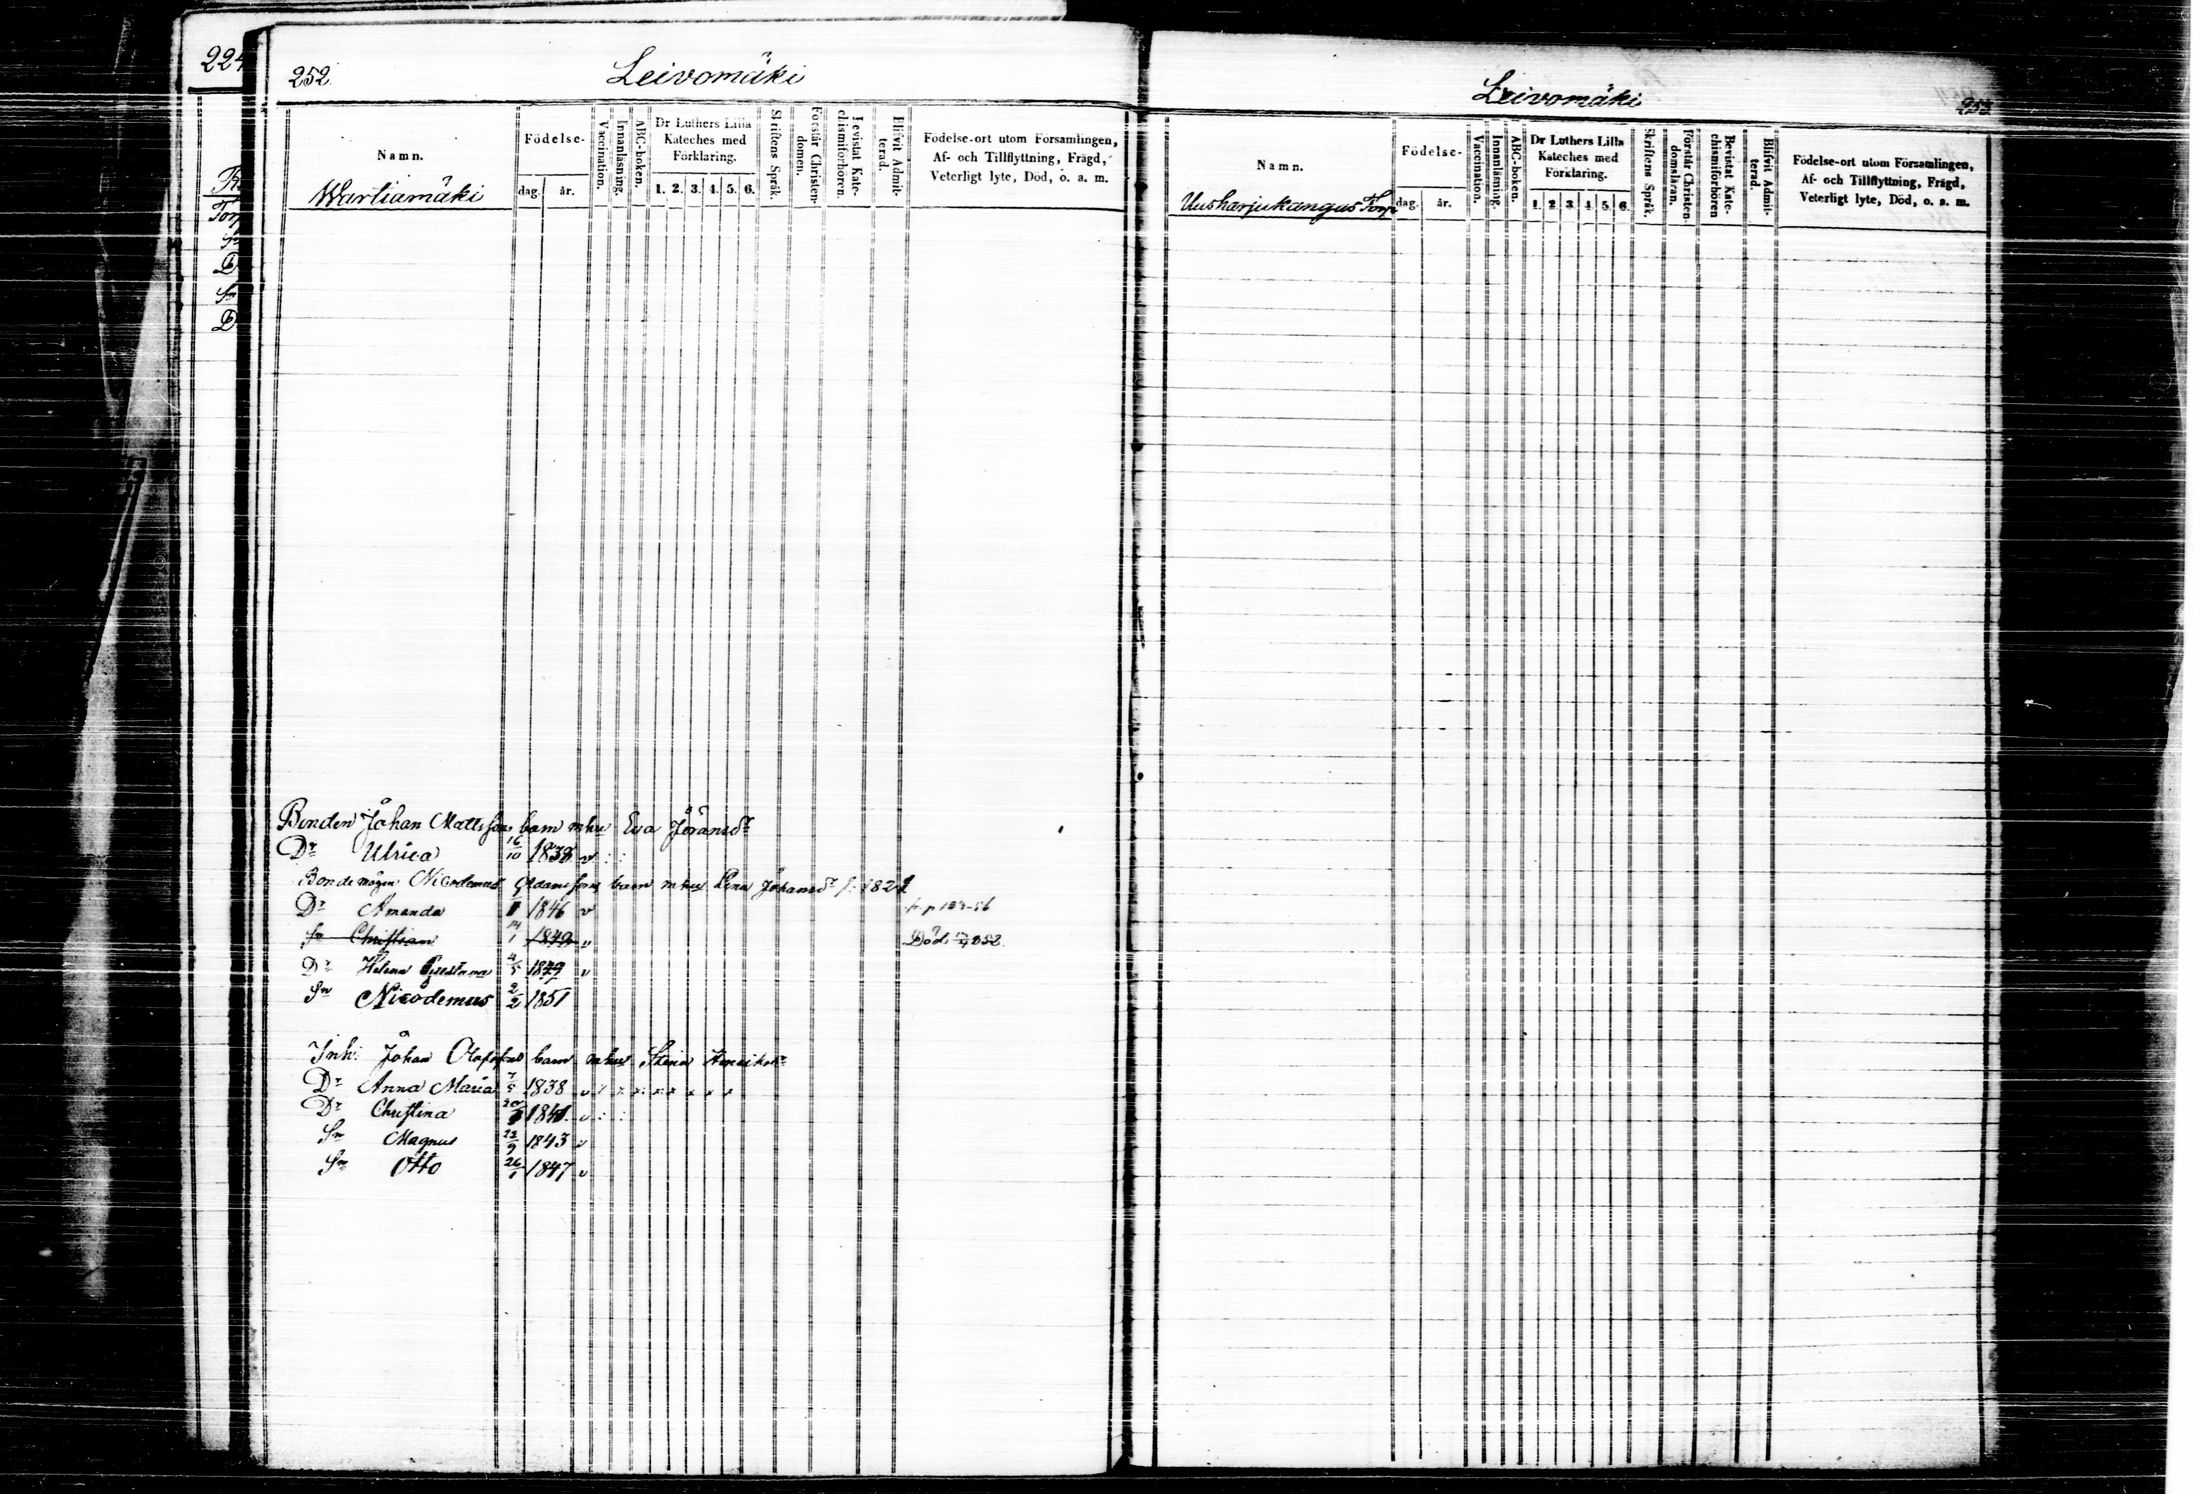 224
252.
Leivomäki
Namn.
Födelse-
dag.
år.
Vaccination.
Innanläsning.
ABC-boken.
Dr Luthers Lilla
Kateches med
Förklaring.
1. 2. 3. 4. 5. 6.
Skriftens Språk.
Förstår Christen-
domen.
Bevistat Kate-
chismiförhören.
Blifvit Admit-
terad.
Födelse-ort utom Församlingen,
Af- och Tillflyttning, Frägd,
Veterligt lyte, Död, o. a. m.
Wartiamäki
Bonden Johan Mattssons barn mhu Eva Jöransdr
Dr Ulrica 16/10 1838 v : :
Bondemågen Nicodemus Adamssons barn mhu Lena Johansdr f. 1821
Dr Amanda 1846 v
Sn Christian 14/1 1849 v Död 1852.
Dr Helena Gustava 4/5 1849 v
Sn Nicodemus 2/2 1851
Inh: Johan Olofssons barn mhu Stina Henriksdr
Dr Anna Maria 7/5 1838 v
Dr Christina 1841. v : :
Sn Magnus 23/9 1843 v
Sn Otto 26/1 1847 v
Leivomäki
253
Namn.
Födelse-
dag.
år.
Vaccination.
Innanläsning.
ABC-boken.
Dr Luthers Lilla
Kateches med
Förklaring.
1. 2. 3. 4. 5. 6.
Skriftens Språk.
Förstår Christen-
domsläran.
Bevistat Kate-
chismiförhören
Blifvit Admit-
terad.
Födelse-ort utom Församlingen,
Af- och Tillflyttning, Frägd,
Veterligt lyte, Död, o. a. m.
Uusharjukangas Torp